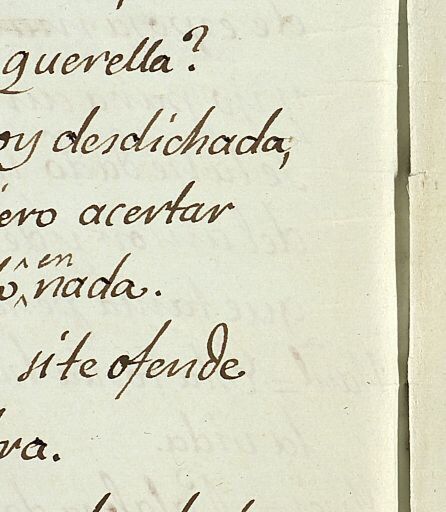 querella?
oy desdichada,
ero acertar
o en nada.
si te ofende
ra.